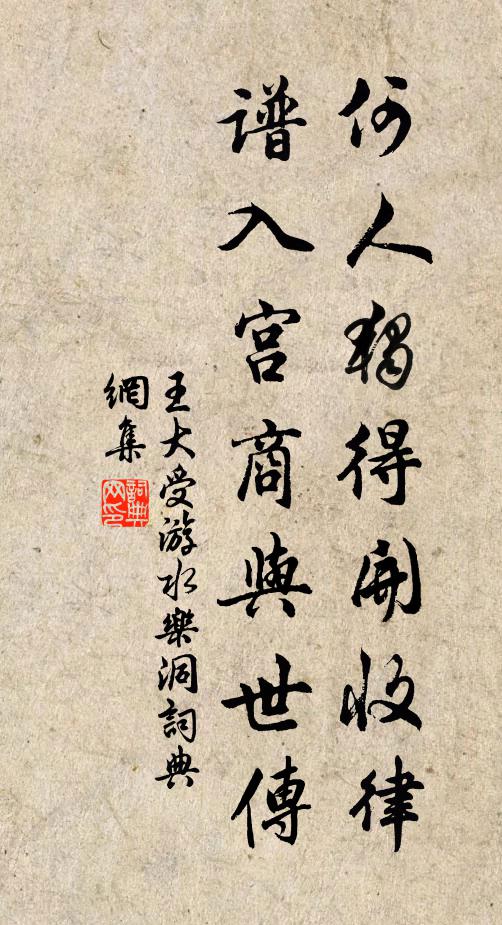 何人獨得開收律
譜入宮商與世傳
王大受游水樂洞詞典
網集
詞典网印